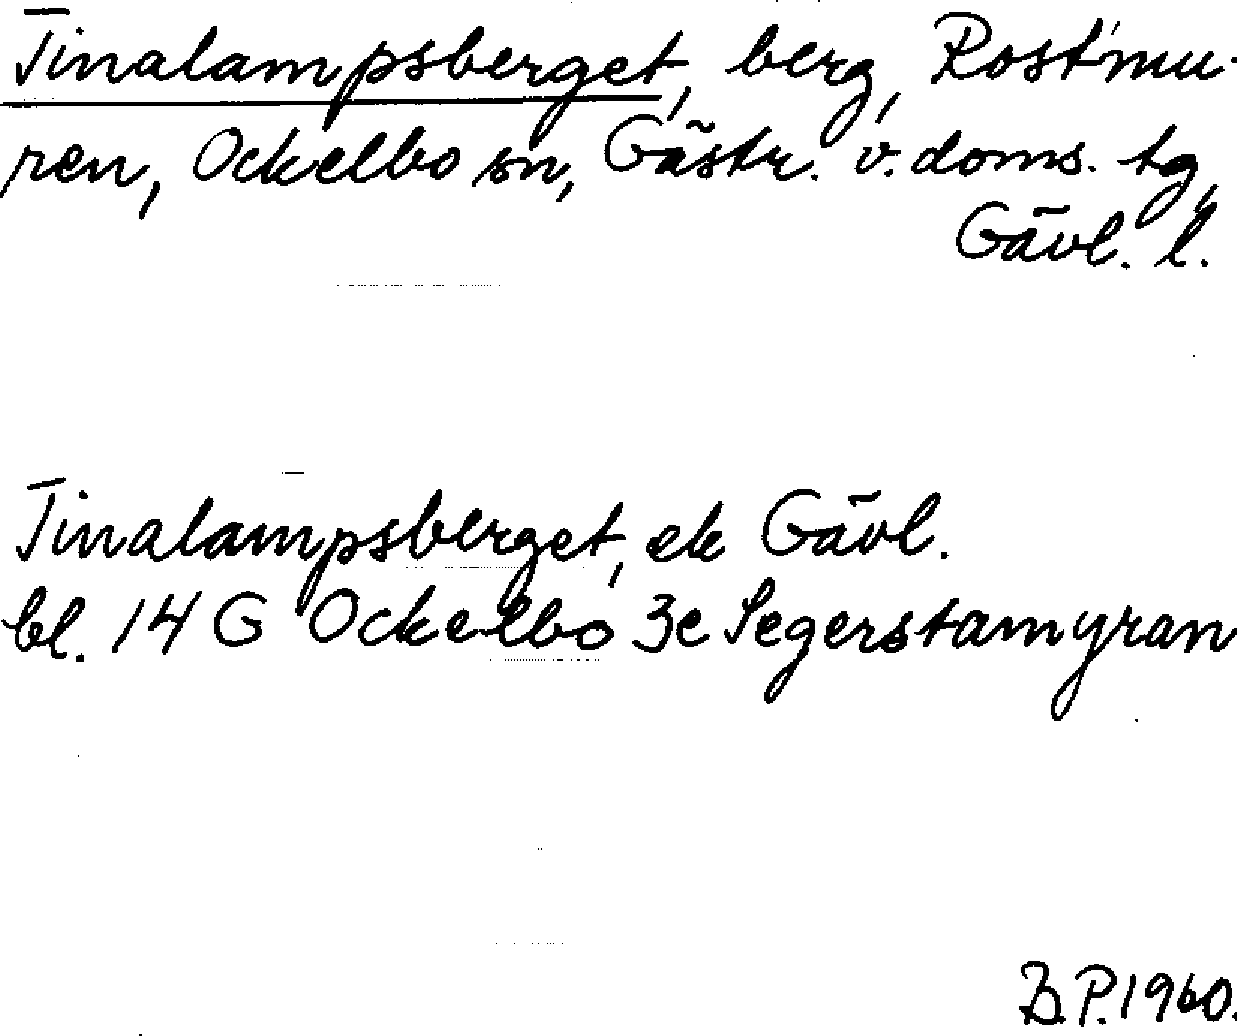 Tinalampsberget, berg, Rostmu-
ren, Ockelbo sn, Gästr. v. doms. tg,
Gävl. l.
Tinalampsberget, ek Gävl.
bl. 14 G Ockelbo 3e Segerstamyran
B.P. 1960.